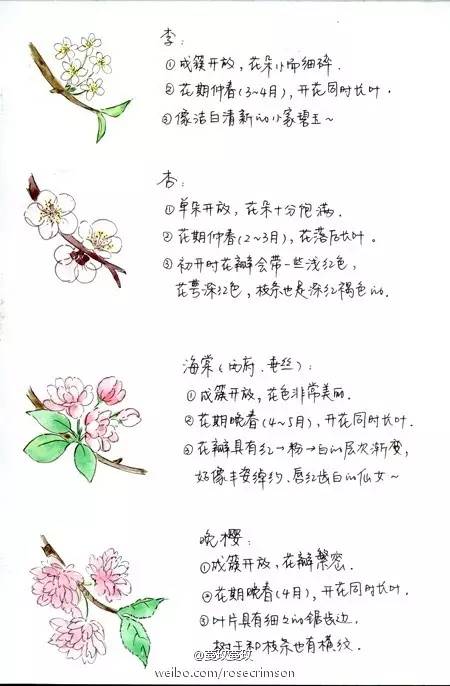 李：
①成簇开放，花朵小而细碎.
②花期仲春(3~4月)，开花同时长叶.
③像洁白清新的小家碧玉~
杏：
①单朵开放，花朵十分饱满.
②花期仲春(2~3月)，花落后长叶。
③初开时花瓣会带一些浅红色，
花萼深红色，枝条也是深红褐色的.
海棠(西府.垂丝)：
①成簇开放，花色非常美丽.
②花期晚春(4~5月)，开花同时长叶.
③花瓣具有红→粉→白的层次渐变，
好像丰姿绰约.唇红齿白的仙女~
晚樱：
①成簇开放，花瓣繁密.
②花期晚春(4月)，开花同时长叶
③叶片具有细々的锯齿边.
树干和枝条也有横纹.
@蔓玫蔓玫
weibo.com/rosecrimson